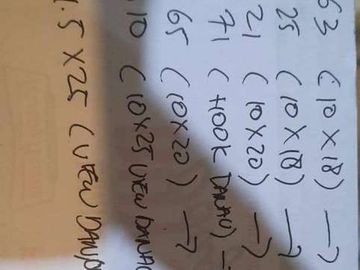 63 (10 X 18) →
25 (10 X 18) →
21 (10X20) →
71 (HOOK DANAU) –
65 (10X20) →
10 (10X25 VIEW DANAU
.5 X 25 (VIEW DANAU